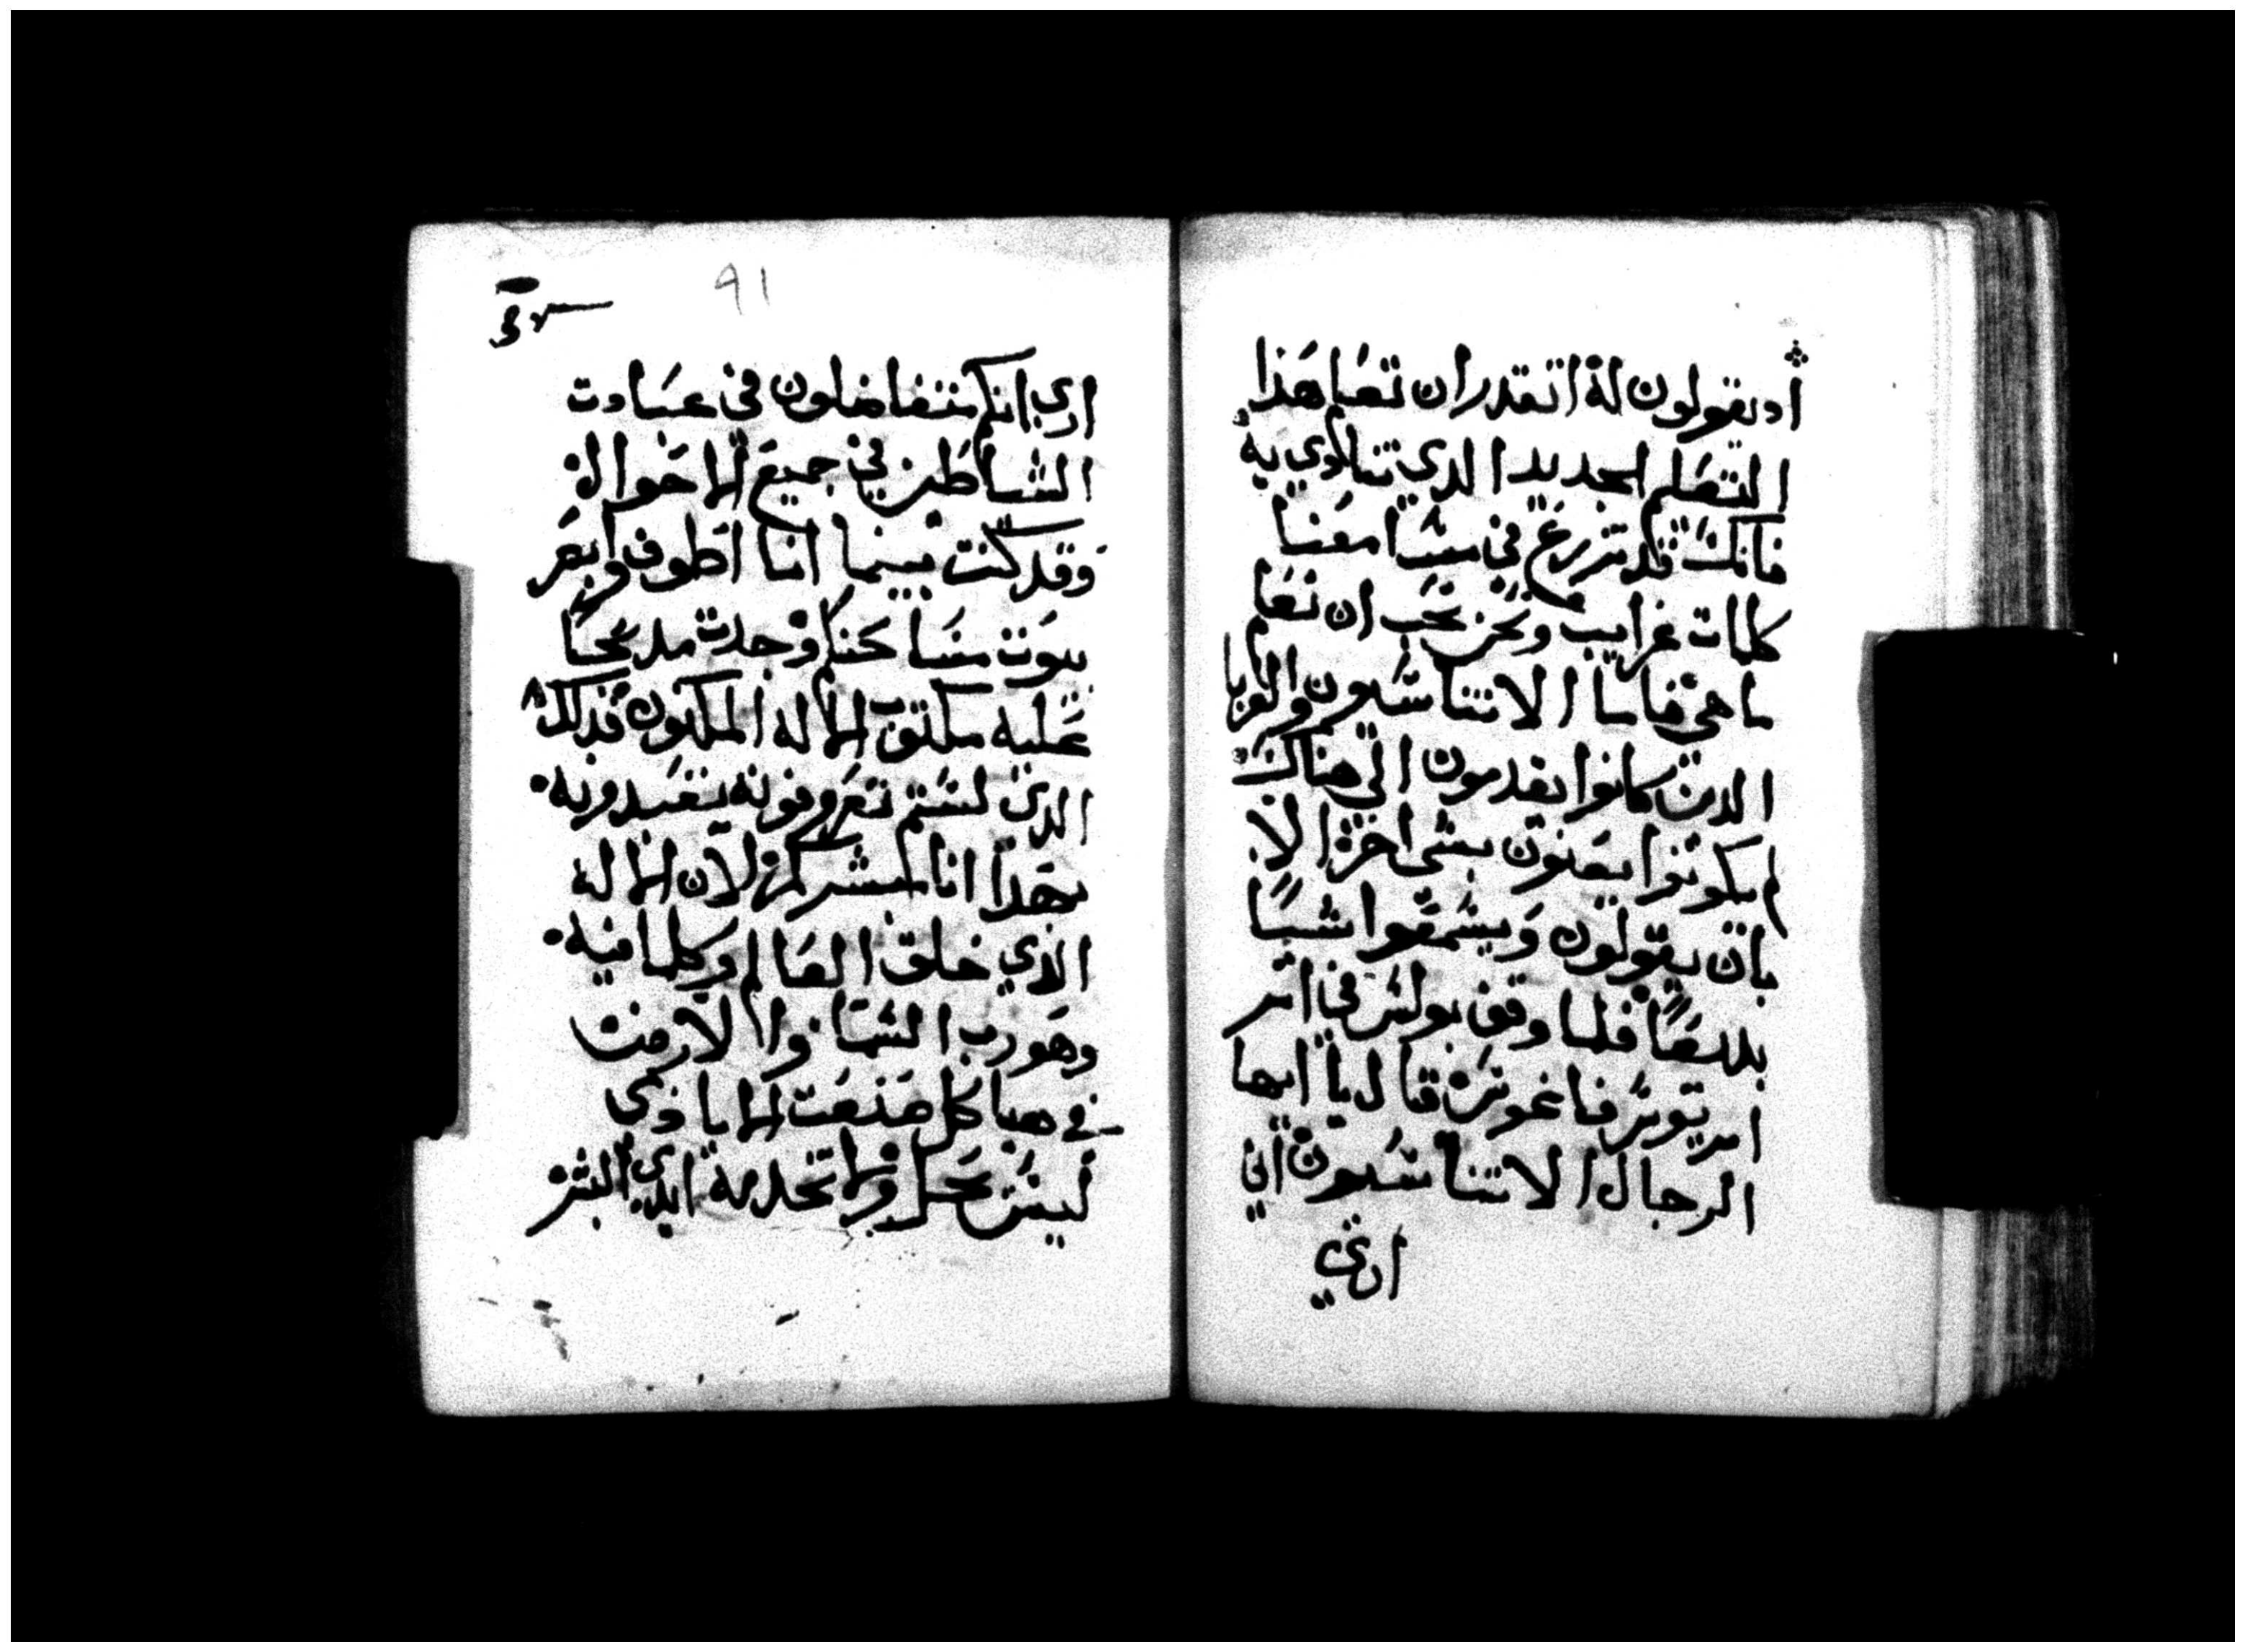 اد يقولون له اتقدر ان تعلم هذا
التعلم الجديد الدي تنادي به
فانك قد تزرع في مسامعنا
كلمات غرايب ونحن نحب ان نعلم
ما هي فاما الاتناسيون والغربا
الدين كانوا يقدمون الي هناك
لم يكونوا يعنون بشي اخر الا
بان يقولون ويسمعوا شيا
بديعا فلما وقف بولس في ا
اريوس فاغوس قال يا ايها
الرجال الاتناسيون اني
اري
91
اري انكم متفاضلون في عبادت
الشياطين في جميع الاحوال
وقد كنت بينما انا اطوف وابصر
بيوت مناسككم وجدت مدبحا
عليه مكتوب الاله المكنون فذلك
الدي لستم تعرفونه تعبدونه
بهدا انا ابشركم لان الاله
الذي خلق العالم وكلما فيه
وهو رب السما والارض
في هياكل صنعت الايادي
ليس يحل ولا تخدمه ايدي البشر